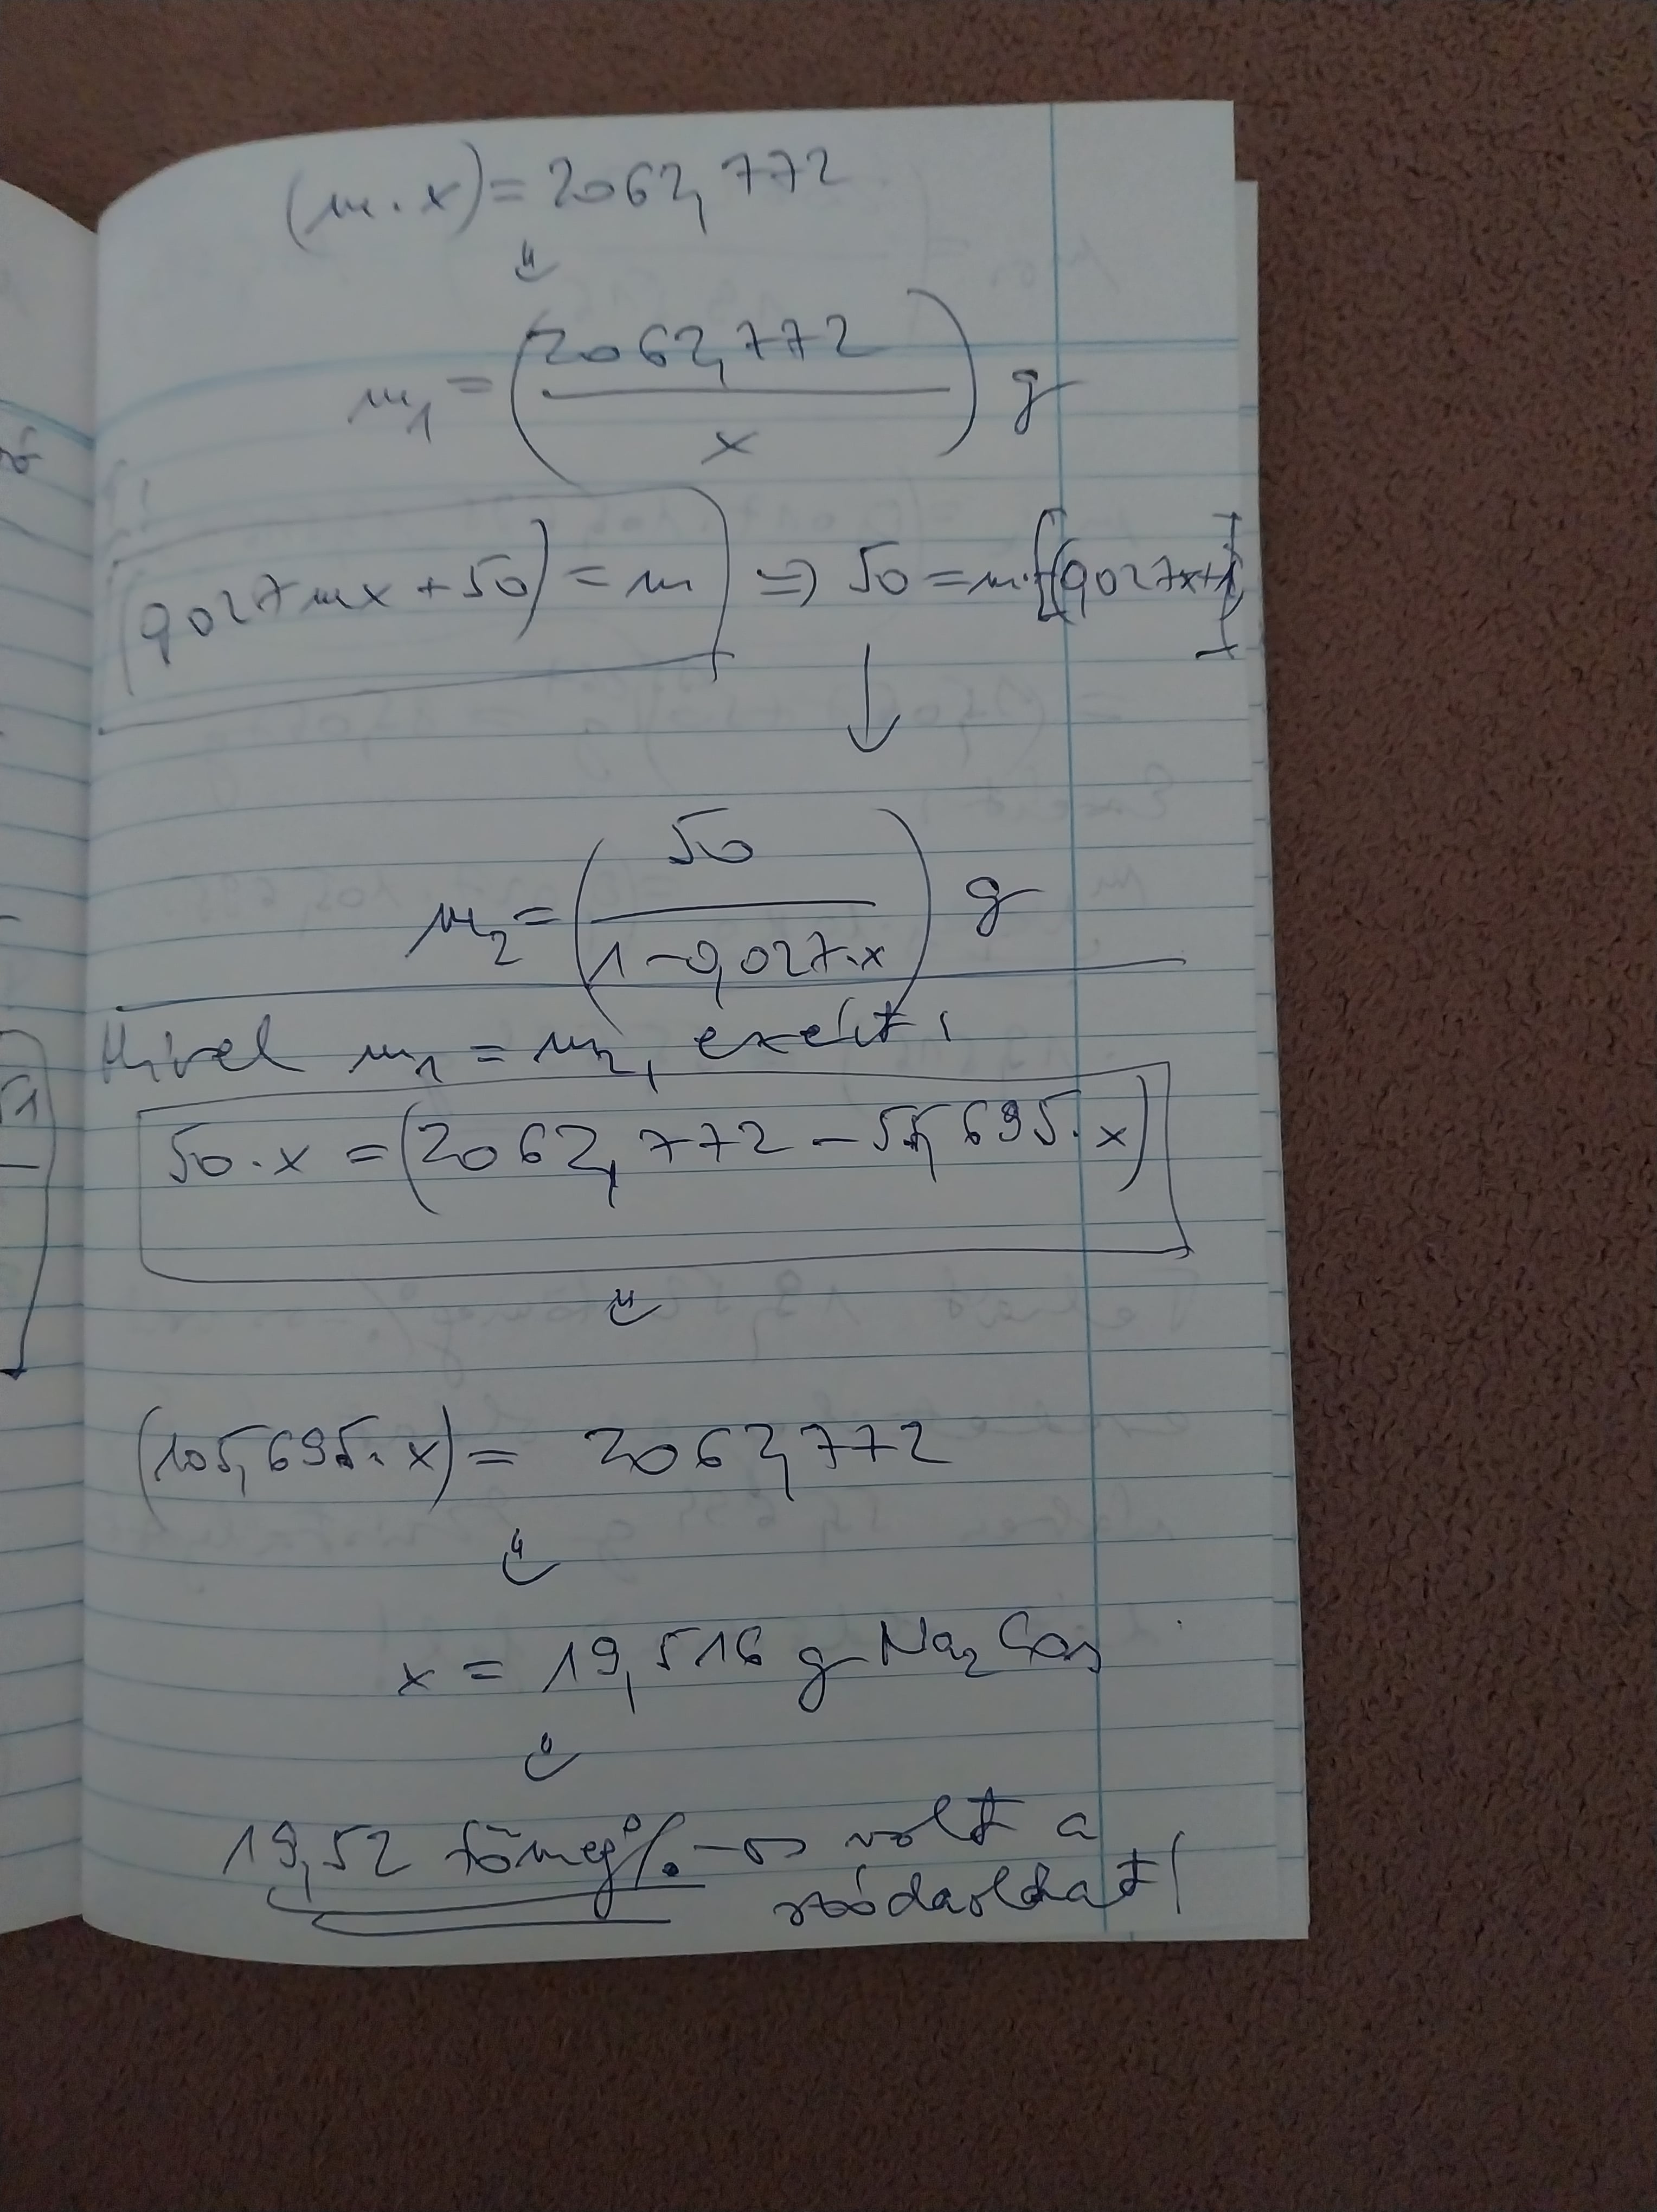 (m·x)=2062,772
⇓
m₁=(2062,772/x) g
(0,027mx+50)=m ⇒ 50=m·[(0,027x+1)]
↓
m₂=(50/1-0,027·x) g
Mivel m₁=m₂, ezért:
50·x=(2062,772-55,695·x)
⇓
(105,695·x)= 2062,772
⇓
x = 19,516 g Na₂CO₃
⇓
19,52 tömeg%-os volt a
szódaoldat!